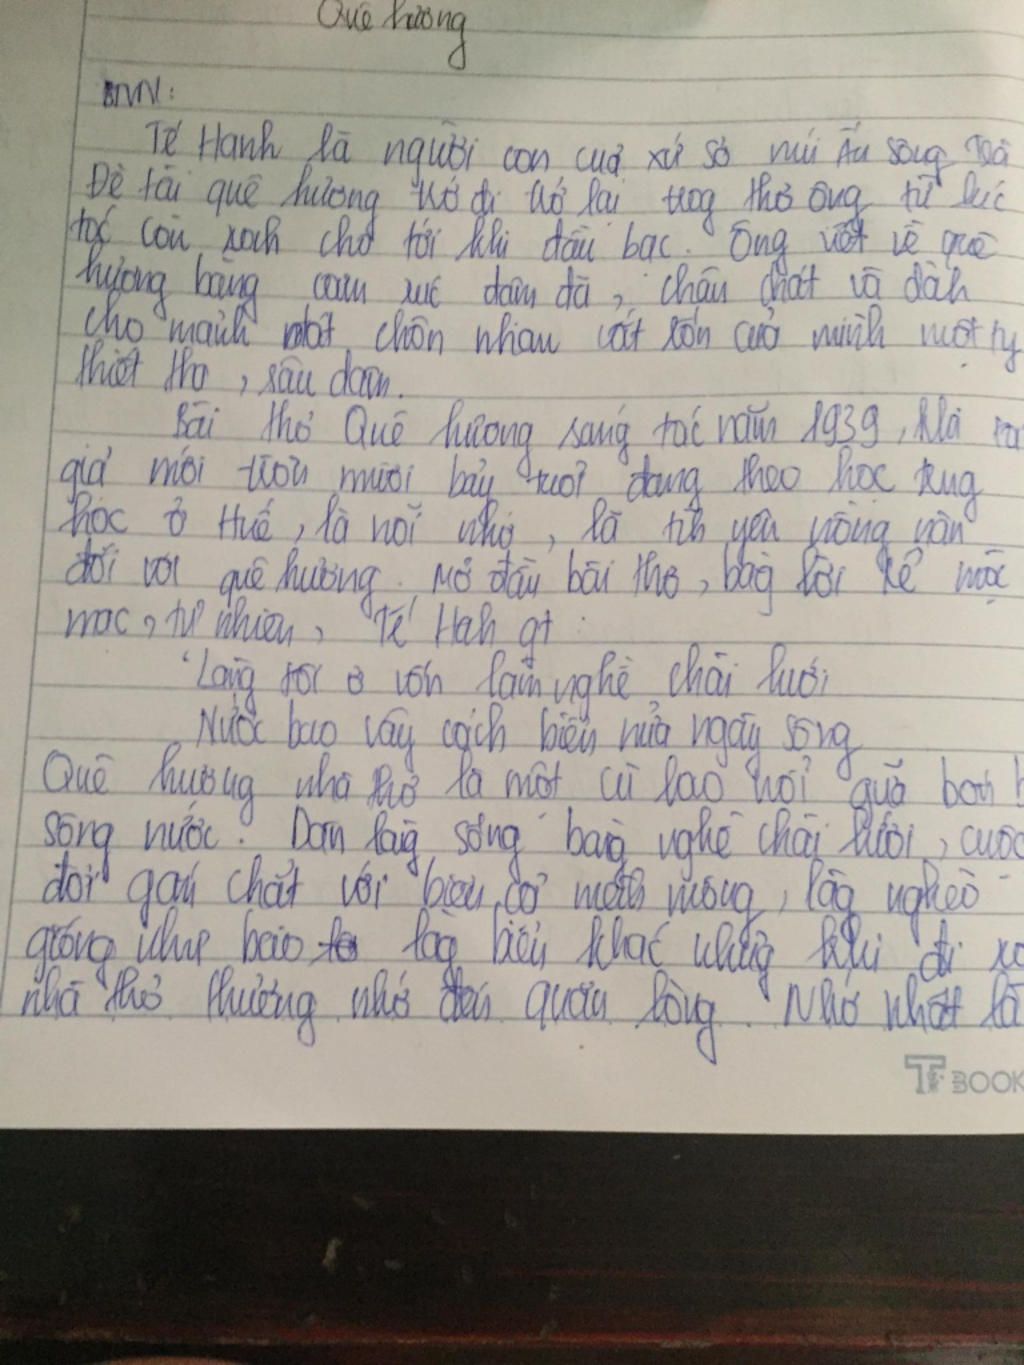 Quê hương
Tế Hanh là người con cuả xứ sở núi Ấn sông Trà
Đề tài quê hương trở đi trở lại trog thơ ông từ lúc
tóc còn xanh cho tới khi đầu bạc. Ông viết về quê
hương bằng cảm xúc đằm đà, chân chất và dành
cho mảnh đất chôn nhau cắt rốn cuả mình một ty
thiết tha, sâu đậm.
Bài thơ Quê hương sáng tác năm 1939, khi tá
giả mới tròn mười bảy tuổi đang theo học trung
học ở Huế, là nỗi nhớ, là tìh yêu nồng nàn
đối với quê hương. Mở đầu bài thơ, bằg lời kể mộc
mạc, tự nhiên, Tế Hah gt:
"Làng tôi ở vốn làm nghề chài lưới
Nước bao vây cách biển nửa ngày sông
Quê hương nhà thơ là một cù lao nổi giữa bốn b
sông nước. Dân làg sống bằg nghề chài lưới, cuộc
đời gắn chặt với biển cả mênh mông, làg nghèo
giống như bao làg biển khác nhưg khi đi xa
nhà thơ thường nhớ đến quặn lòng. Nhớ nhất là
TF BOOK